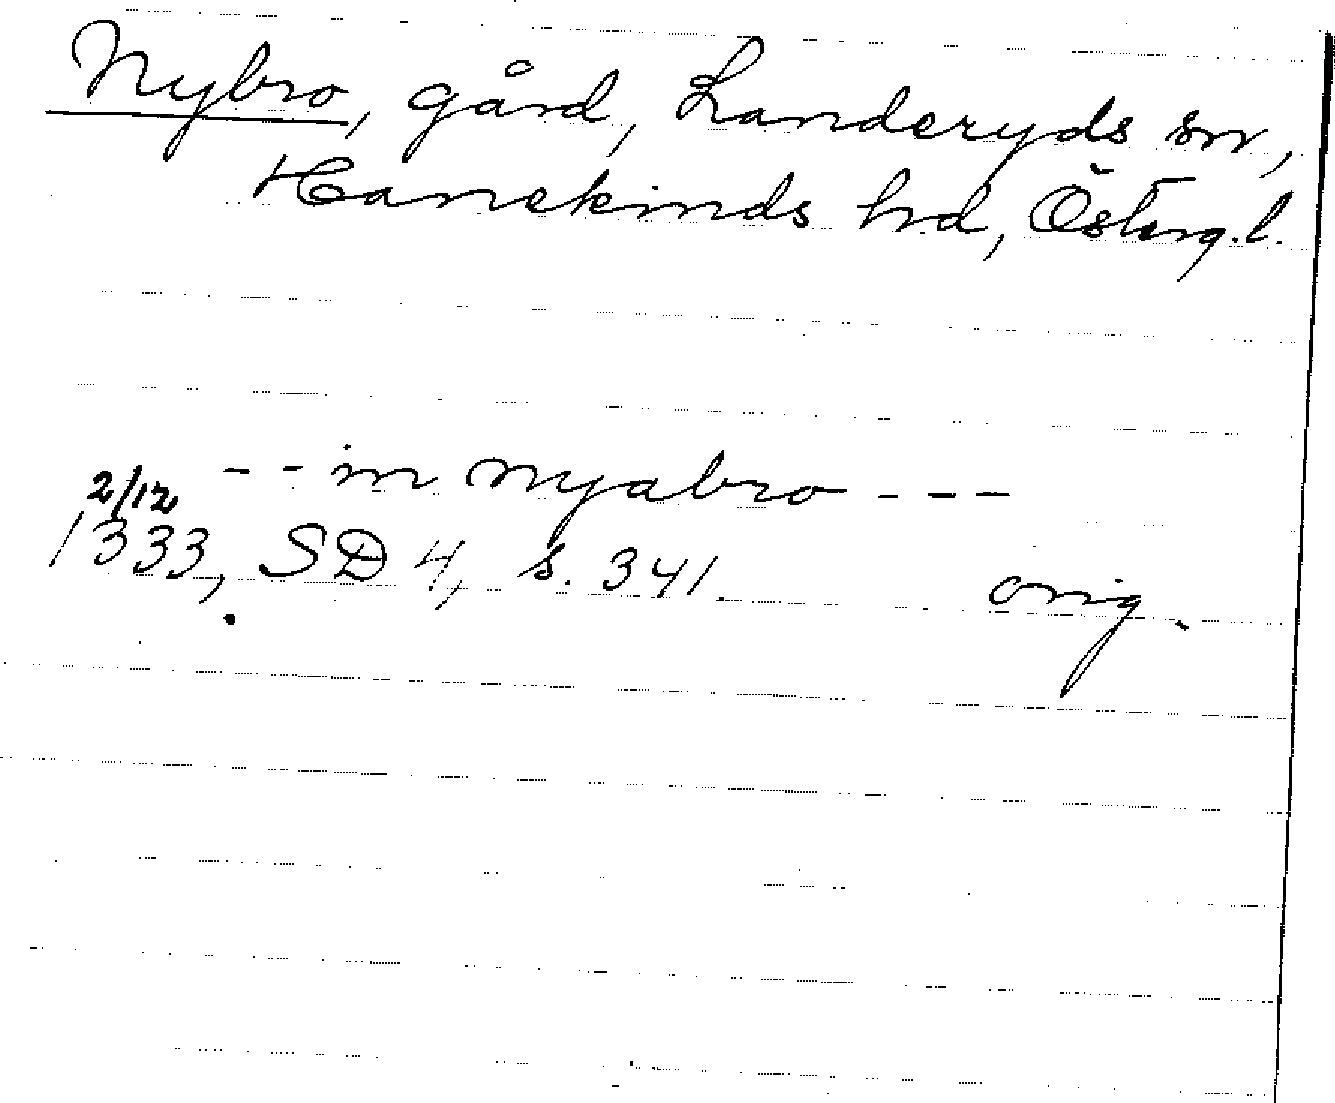 Nybro, gård, Landeryds sn,
Hanekinds hd, Österg. l.
- - in nyabro - - -
2/12
1333, SD 4, s. 341. orig.